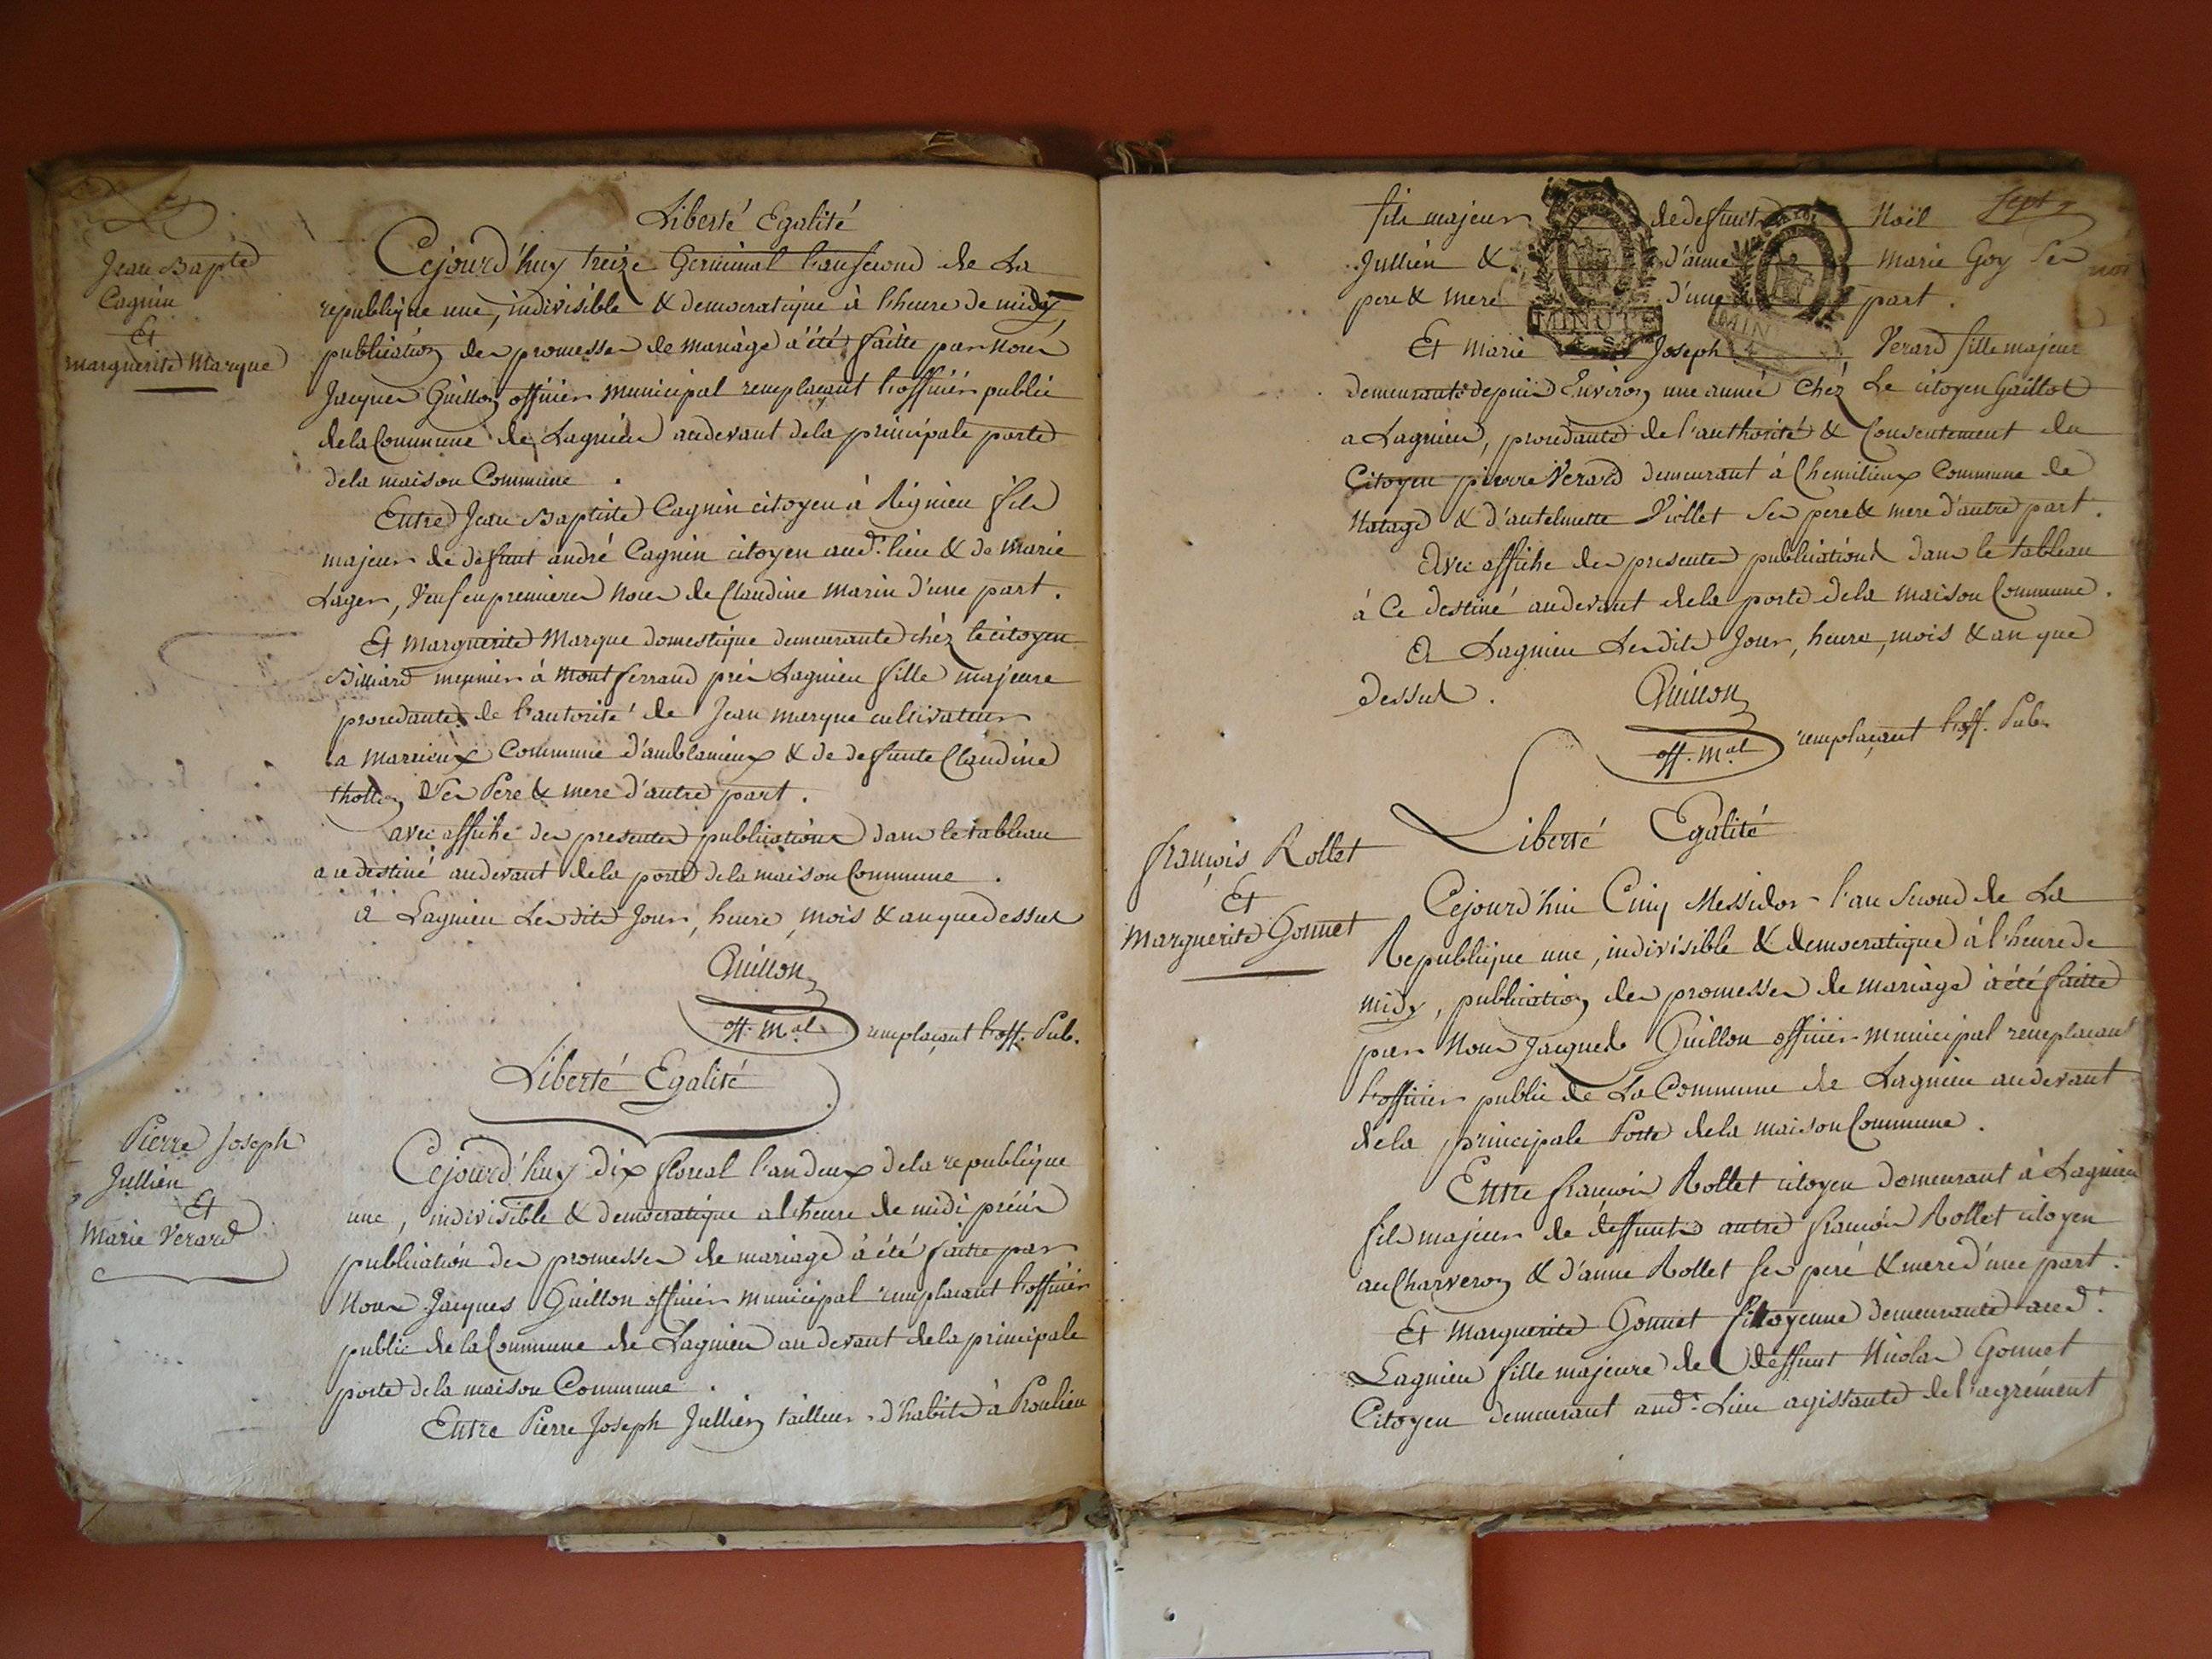 Liberté Egalité
Jean Bapte
Cagnin
Et
marguerite Marque
Cejourd'huy treize Germinal l'an second de La
republique une, indivisible & democratique à l'heure de midy,
publication des promesses de mariage a été faitte par nous
Jacques Guillon officier municipal remplaçant l'officier public
de la Commune de Lagnieu au devant de la principale porte
de la maison Commune.
Entre Jean Baptiste Cagnin citoyen à Rignieu fils
majeur de defunt andré Cagnin citoyen aud. lieu & de marie
Lager, Veuf en premieres noces de Claudine Marin d'une part.
Et Marguerite Marque domestique demeurante chéz le citoyen
Billiard meunier à Montferrand près Lagnieu fille majeure
procedante de l'autorité de Jean marque cultivateur
a Marcieux Commune d'amblanieux & de defunte Claudine
thollon Ses Pere & mere d'autre part.
avec affiche des presentes publications dans le tableau
a ce destiné au devant de la porte de la maison Commune.
à Lagnieu Les dits Jour, heure, mois & an que dessus
Guillon
off. m.al remplaçant l'off. Pub.
Liberté Egalité
Pierre Joseph
Jullien
Et
Marie Verard
Cejourd'huy dix floreal l'an deux de la republique
une, indivisible & democratique a l'heure de midi précis
publication des promesses de mariage à été faitte par
Nous Jacques Guillon officier municipal remplacant l'officier
public de la Commune de Lagnieu au devant de la principale
porte de la maison Commune.
Entre Pierre Joseph Jullien tailleur d'habits à Proulieu
Sept
fils majeur de deffunt Noël
Jullien & d'anne Marie Goy Ses
pere & mere d'une part.
MINUTE
Et Marie Joseph Verard fille majeur
demeurante depuis Environ une année Chéz Le citoyen Gaillot
a Lagnieu, procedante de l'authorité & Consentement du
Citoyen pierre Verard demeurant à Chemilieux Commune de
Natage & d'antelmette Viollet Ses pere & mere d'autre part.
Avec affiche des presentes publications dans le tableau
à Ce destiné au devant de la porte de la maison Commune.
A Lagnieu Les dits Jour, heure, mois & an que
dessus.
Guillon
off. m.al remplaçant l'off. Pub.
Liberté Egalité
françois Rollet
Et
Marguerite Gonnet
Cejourd'hui Cinq Messidor l'an Second de La
Republique une, indivisible & democratique à l'heure de
midy, publication des promesses de mariage à été faitte
par Nous Jacques Guillon officier municipal remplacant
l'officier public de La Commune de Lagnieu au devant
de la principale Porte de la maison Commune.
Entre françois Rollet citoyen demeurant à Lagnieu
fils majeur de deffunts autre françois Rollet citoyen
au Charveron & d'anne Rollet ses peré & mere d'une part.
Et Marguerite Gonnet Citoyenne demeurante aud.
Lagnieu fille majeure de deffunt Nicolas Gonnet
Citoyen demeurant aud. Lieu agissante de l'agrément